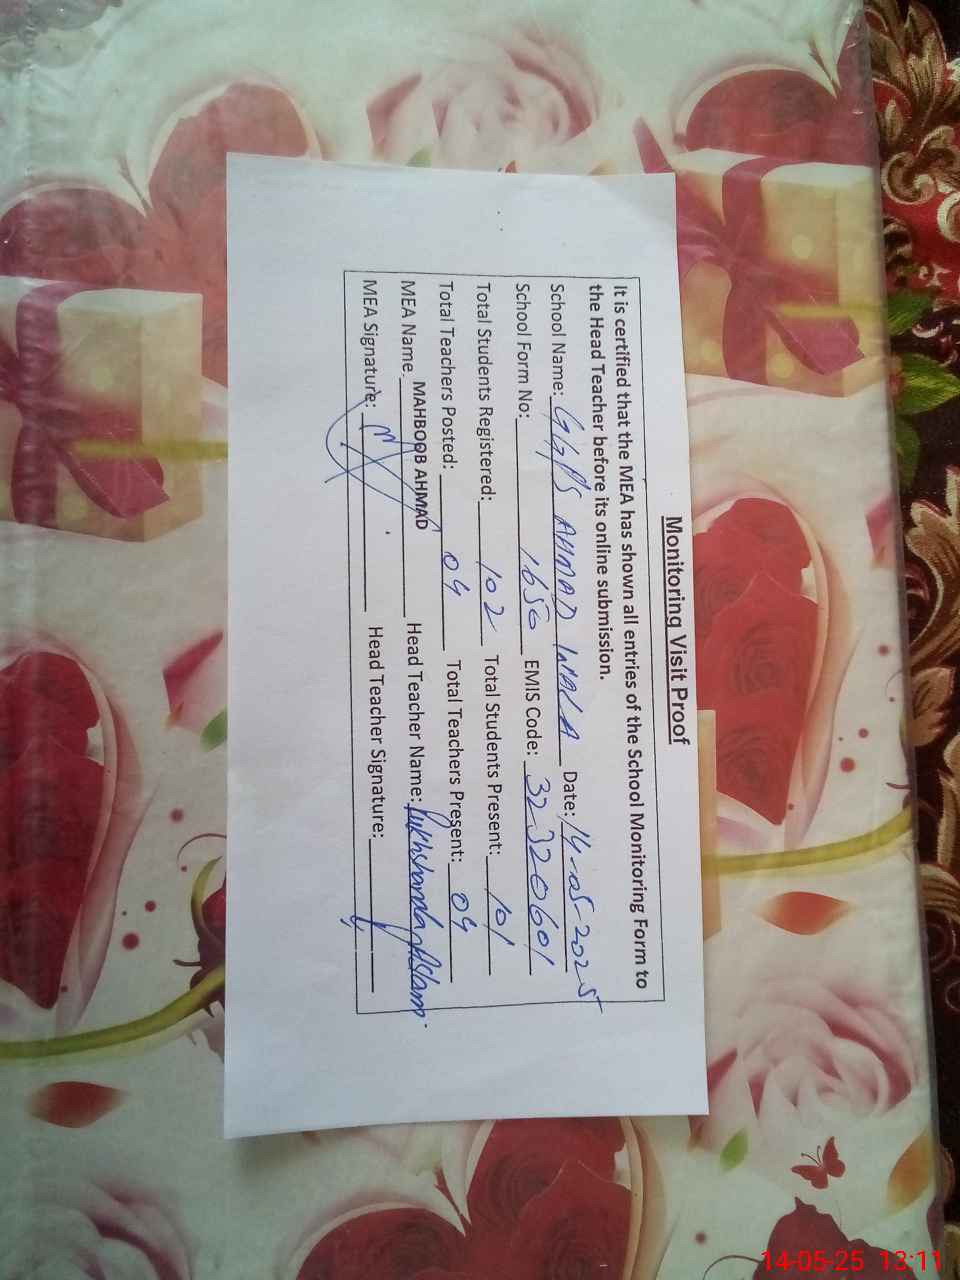 Monitoring Visit Proof
It is certified that the MEA has shown all entries of the School Monitoring Form to
the Head Teacher before its online submission.
School Name: GGPS AHMAD WALA Date: 14-05-2025
School Form No: 1650 EMIS Code: 32320601
Total Students Registered: 102 Total Students Present: 101
Total Teachers Posted: 04 Total Teachers Present: 04
MEA Name MAHBOOB AHMAD Head Teacher Name: Rukhshanda Aslam
MEA Signature: Head Teacher Signature:
14-05-25 13:11